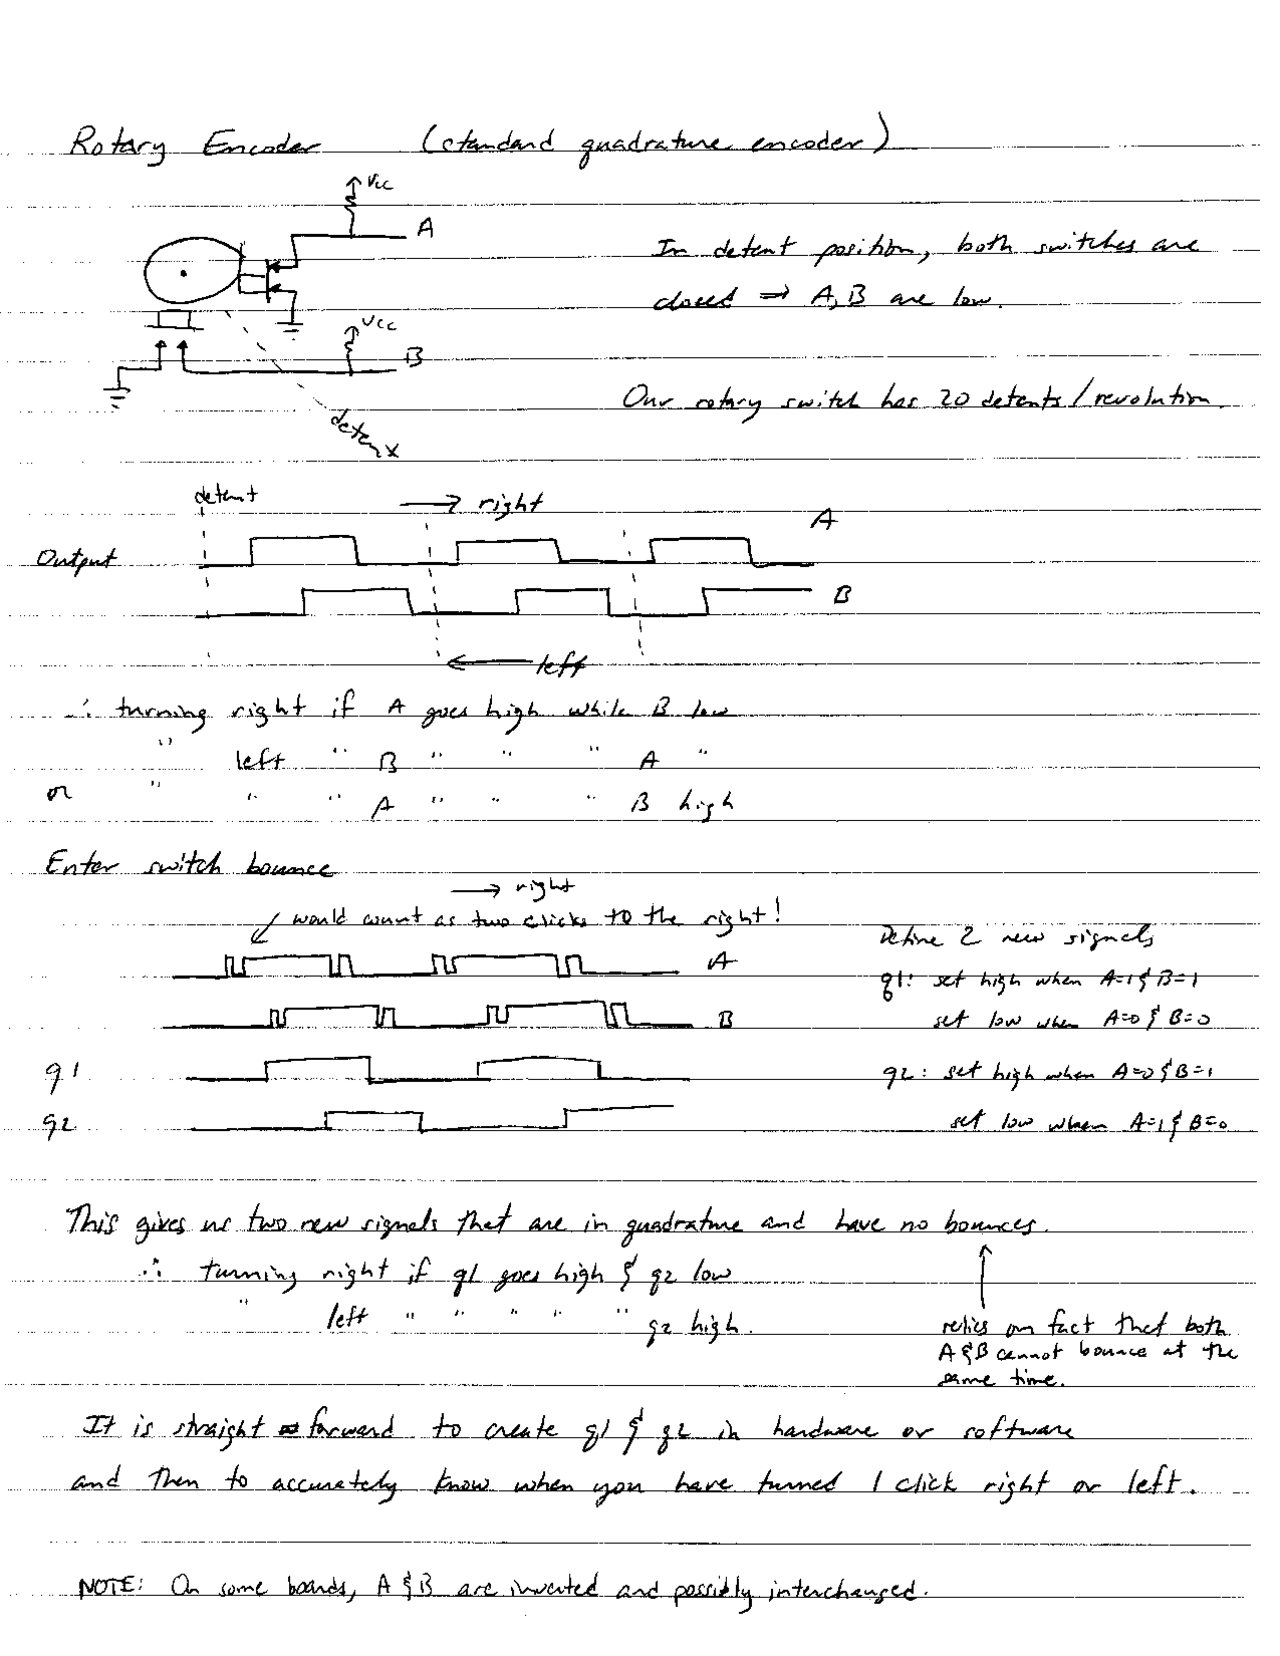 Rotary Encoder (standard quadrature encoder)
Vcc
A
In detent position, both switches are
closed ⇒ A, B are low.
Vcc
B
Our rotary switch has 20 detents/revolution.
detent
detent
→ right
A
Output
B
← left
∴ turning right if A goes high while B low
" left " B " " " A "
or " " " A " " " B high
Enter switch bounce
→ right
would count as two clicks to the right!
A
B
q1
q2
Define 2 new signals
q1: set high when A=1 & B=1
set low when A=0 & B=0
q2: set high when A=0 & B=1
set low when A=1 & B=0
This gives us two new signals that are in quadrature and have no bounces.
∴ turning right if q1 goes high & q2 low
" left " " " " " q2 high.
relies on fact that both
A & B cannot bounce at the
same time.
It is straight forward to create q1 & q2 in hardware or software
and then to accurately know when you have turned 1 click right or left.
NOTE: On some boards, A & B are inverted and possibly interchanged.